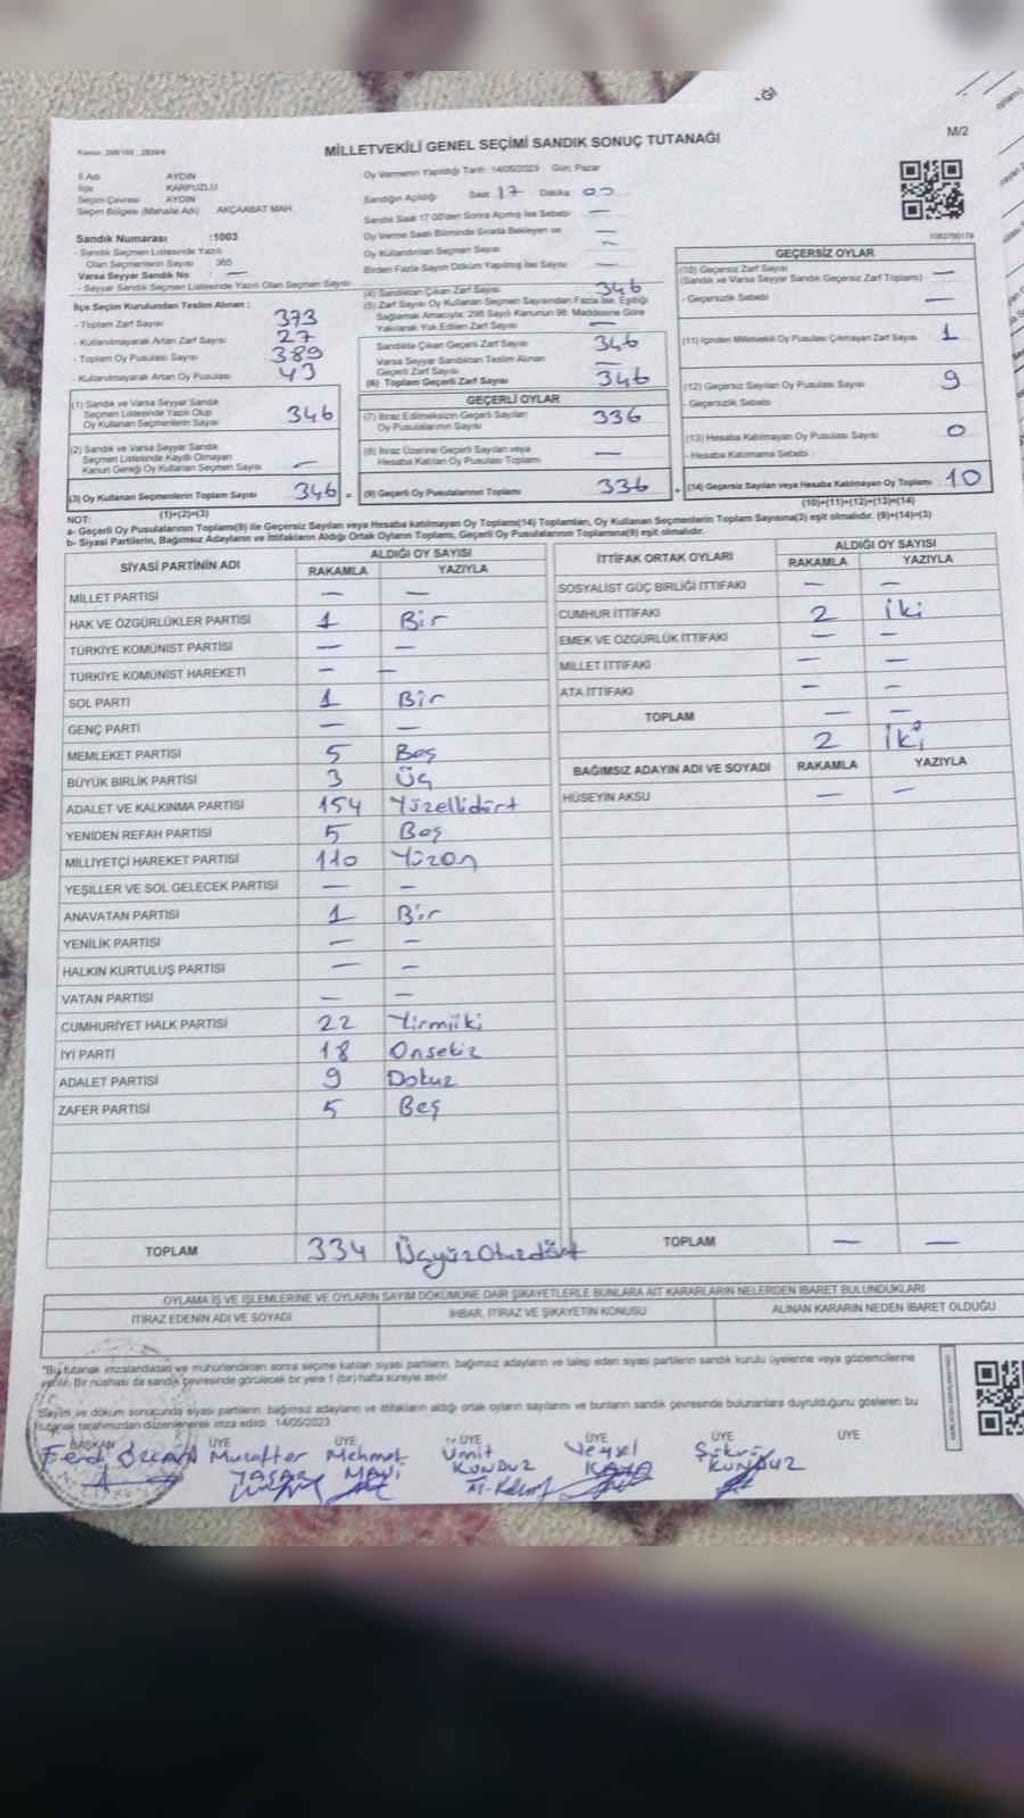 MİLLETVEKİLİ GENEL SEÇİMİ SANDIK SONUÇ TUTANAĞI
M/2
İl Adı AYDIN
İlçe KARPUZLU
Seçim Çevresi AYDIN
Seçim Bölgesi (Mahalle Adı) AKÇAABAT MAH.
Sandık Numarası :1003
- Sandık Seçmen Listesinde Yazılı
Olan Seçmenlerin Sayısı 365
Varsa Seyyar Sandık No : —
- Seyyar Sandık Seçmen Listesinde Yazılı Olan Seçmen Sayısı
Oy Vermenin Yapıldığı Tarih: 14/05/2023 Gün: Pazar
Sandığın Açılışı Saat 17 Dakika 00
Sandık Saat 17.00'den Sonra Açılmış İse Sebebi —
Oy Verme Saati Bitiminde Sırada Bekleyen ve —
Oy Kullandırılan Seçmen Sayısı —
Birden Fazla Sayım Döküm Yapılmış İse Sayısı
İlçe Seçim Kurulundan Teslim Alınan :
- Toplam Zarf Sayısı 373
- Kullanılmayarak Artan Zarf Sayısı 27
- Toplam Oy Pusulası Sayısı 389
- Kullanılmayarak Artan Oy Pusulası 43
(1) Sandık ve Varsa Seyyar Sandık
Seçmen Listesinde Yazılı Olup
Oy Kullanan Seçmenlerin Sayısı 346
(2) Sandık ve Varsa Seyyar Sandık
Seçmen Listesinde Kayıtlı Olmayan
Kanun Gereği Oy Kullanan Seçmen Sayısı —
(3) Oy Kullanan Seçmenlerin Toplam Sayısı 346 =
(1)+(2)=(3)
(4) Sandıktan Çıkan Zarf Sayısı 346
(5) Zarf Sayısı Oy Kullanan Seçmen Sayısından Fazla İse, Eşitliği
Sağlamak Amacıyla, 298 Sayılı Kanunun 98. Maddesine Göre
Yakılarak Yok Edilen Zarf Sayısı —
Sandıkta Çıkan Geçerli Zarf Sayısı 346
Varsa Seyyar Sandıktan Teslim Alınan
Geçerli Zarf Sayısı —
(6) Toplam Geçerli Zarf Sayısı 346
GEÇERLİ OYLAR
(7) İtiraz Edilmeksizin Geçerli Sayılan
Oy Pusulalarının Sayısı 336
(8) İtiraz Üzerine Geçerli Sayılan veya
Hesaba Katılan Oy Pusulası Toplamı —
(9) Geçerli Oy Pusulalarının Toplamı 336 +
GEÇERSİZ OYLAR
(10) Geçersiz Zarf Sayısı
(Sandık ve Varsa Seyyar Sandık Geçersiz Zarf Toplamı) —
- Geçersizlik Sebebi —
(11) İçinden Milletvekili Oy Pusulası Çıkmayan Zarf Sayısı 1
(12) Geçersiz Sayılan Oy Pusulası Sayısı 9
- Geçersizlik Sebebi
(13) Hesaba Katılmayan Oy Pusulası Sayısı 0
- Hesaba Katılmama Sebebi
(14) Geçersiz Sayılan veya Hesaba Katılmayan Oy Toplamı 10
(10)+(11)+(12)+(13)=(14)
NOT:
a- Geçerli Oy Pusulasıların Toplamı(9) ile Geçersiz Sayılan veya Hesaba katılmayan Oy Toplamı(14) Toplamları, Oy Kullanan Seçmenlerin Toplam Sayısına(3) eşit olmalıdır. (9)+(14)=(3)
b- Siyasi Partilerin, Bağımsız Adayların ve İttifakların Aldığı Ortak Oyların Toplamı, Geçerli Oy Pusulalarının Toplamına(9) eşit olmalıdır.
SİYASİ PARTİNİN ADI ALDIĞI OY SAYISI
RAKAMLA YAZIYLA
MİLLET PARTİSİ — —
HAK VE ÖZGÜRLÜKLER PARTİSİ 1 Bir
TÜRKİYE KOMÜNİST PARTİSİ — —
TÜRKİYE KOMÜNİST HAREKETİ — —
SOL PARTİ 1 Bir
GENÇ PARTİ — —
MEMLEKET PARTİSİ 5 Beş
BÜYÜK BİRLİK PARTİSİ 3 Üç
ADALET VE KALKINMA PARTİSİ 154 Yüzellidört
YENİDEN REFAH PARTİSİ 5 Beş
MİLLİYETÇİ HAREKET PARTİSİ 110 Yüzon
YEŞİLLER VE SOL GELECEK PARTİSİ — —
ANAVATAN PARTİSİ 1 Bir
YENİLİK PARTİSİ — —
HALKIN KURTULUŞ PARTİSİ — —
VATAN PARTİSİ — —
CUMHURİYET HALK PARTİSİ 22 Yirmiiki
İYİ PARTİ 18 Onsekiz
ADALET PARTİSİ 9 Dokuz
ZAFER PARTİSİ 5 Beş
TOPLAM 334 ÜçyüzOtuzdört
İTTİFAK ORTAK OYLARI ALDIĞI OY SAYISI
RAKAMLA YAZIYLA
SOSYALİST GÜÇ BİRLİĞİ İTTİFAKI — —
CUMHUR İTTİFAKI 2 iki
EMEK VE ÖZGÜRLÜK İTTİFAKI — —
MİLLET İTTİFAKI — —
ATA İTTİFAKI — —
TOPLAM — —
2 iki
BAĞIMSIZ ADAYIN ADI VE SOYADI RAKAMLA YAZIYLA
HÜSEYİN AKSU — —
TOPLAM — —
OYLAMA İŞ VE İŞLEMLERİNE VE OYLARIN SAYIM DÖKÜMÜNE DAİR ŞİKAYETLERLE BUNLARA AİT KARARLARIN NELERDEN İBARET BULUNDUKLARI
İTİRAZ EDENİN ADI VE SOYADI İHBAR, İTİRAZ VE ŞİKAYETİN KONUSU ALINAN KARARIN NEDEN İBARET OLDUĞU
*Bu tutanak imzalandıktan ve mühürlendikten sonra seçime katılan siyasi partilerin, bağımsız adayların ve talep eden siyasi partilerin sandık kurulu üyelerine veya gözlemcilerine
verilir. Bir nüshası da sandık çevresinde görülecek bir yere 1 (bir) hafta süreyle asılır.
Sayım ve döküm sonucunda siyasi partilerin, bağımsız adayların ve ittifakların aldığı ortak oyların sayılarını ve bunların sandık çevresinde bulunanlara duyurulduğunu gösteren bu
tutanak tarafımızdan düzenlenerek imza edildi. 14/05/2023
BAŞKAN ÜYE ÜYE ÜYE ÜYE ÜYE ÜYE
Ferdi Muzaffer Mehmet Ümit Veysel Şükrü
YAŞAR MAVİ KUNDUZ KAYA KUNDUZ